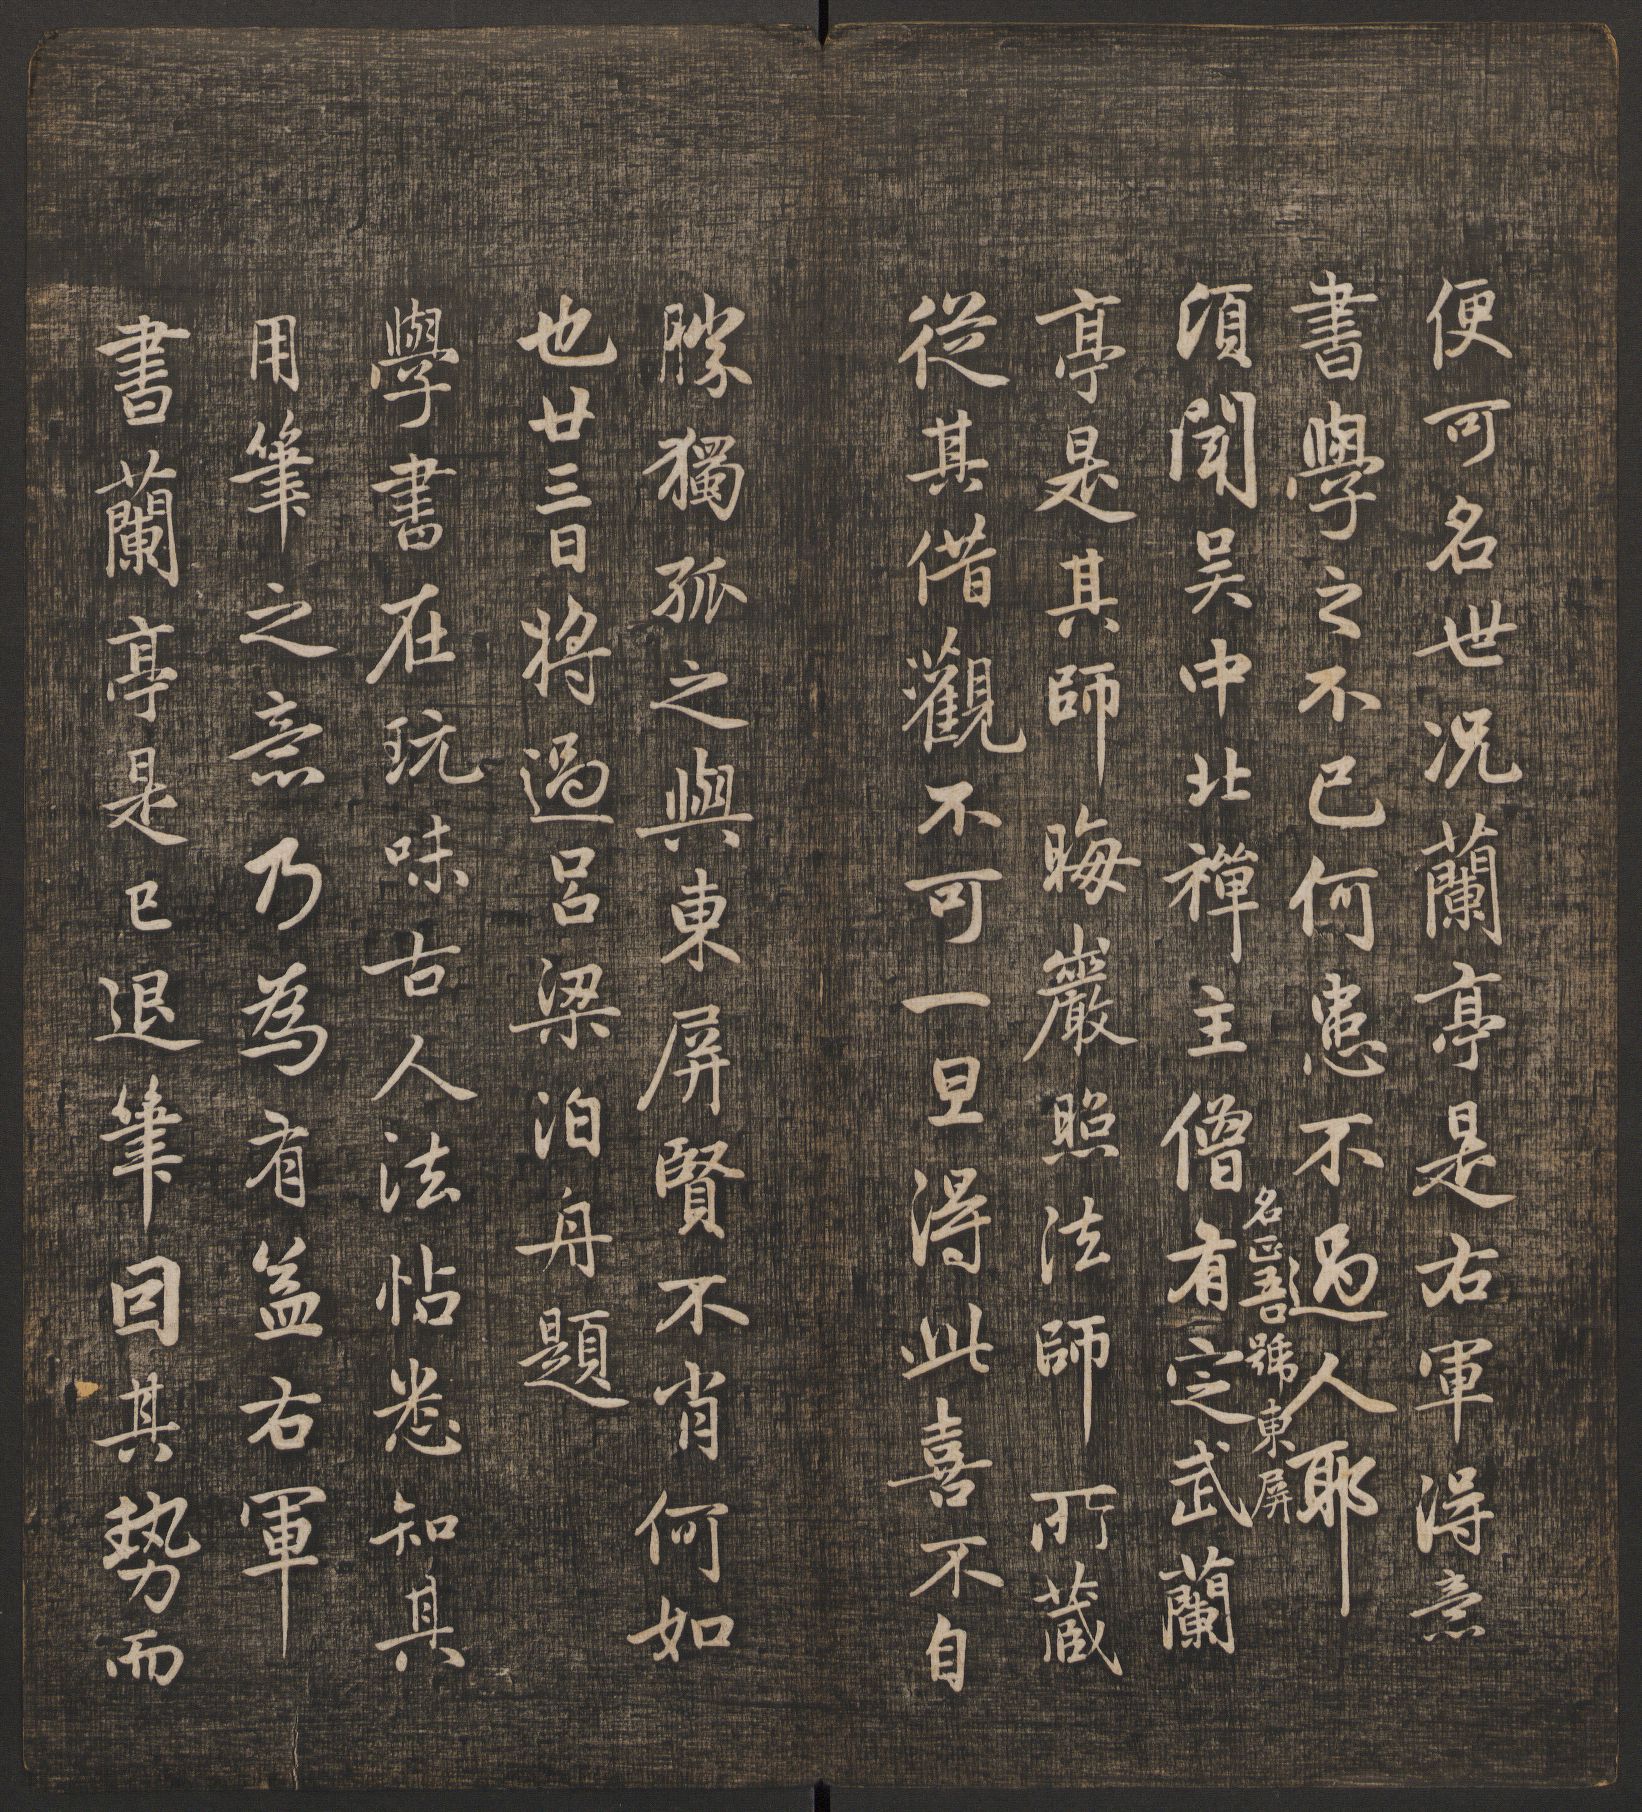 便可名世况蘭亭是右軍得意
書學之不已何患不過人耶
頃聞吴中北禪主僧有定武蘭
名正吾號東屏
亭是其師晦巖照法師所蔵
從其借觀不可一旦得此喜不自
勝獨孤之與東屏賢不肖何如
也廿三日将過吕梁泊舟題
學書在玩味古人法帖悉知其
用筆之意乃為有益右軍
書蘭亭是已退筆因其勢而